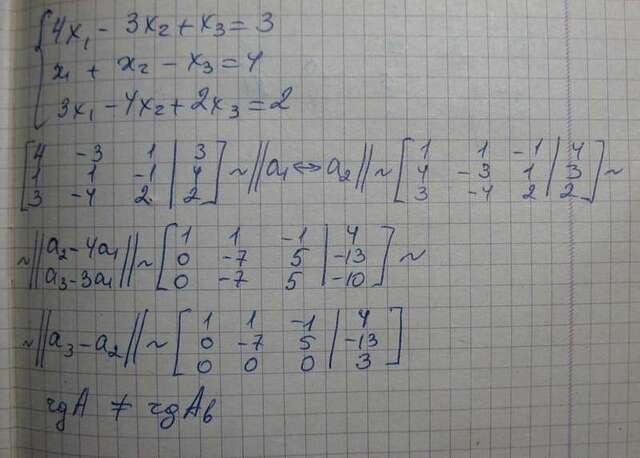 4x₁ - 3x₂ + x₃ = 3
x₁ + x₂ - x₃ = 4
3x₁ - 4x₂ + 2x₃ = 2
[4 -3 1 | 3
1 1 -1 | 4
3 -4 2 | 2] ~ ||a₁ ↔ a₂|| ~ [1 1 -1 | 4
4 -3 1 | 3
3 -4 2 | 2] ~
~ ||a₂ - 4a₁
a₃ - 3a₁|| ~ [1 1 -1 | 4
0 -7 5 | -13
0 -7 5 | -10] ~
~ ||a₃ - a₂|| ~ [1 1 -1 | 4
0 -7 5 | -13
0 0 0 | 3]
rgA ≠ rgAb